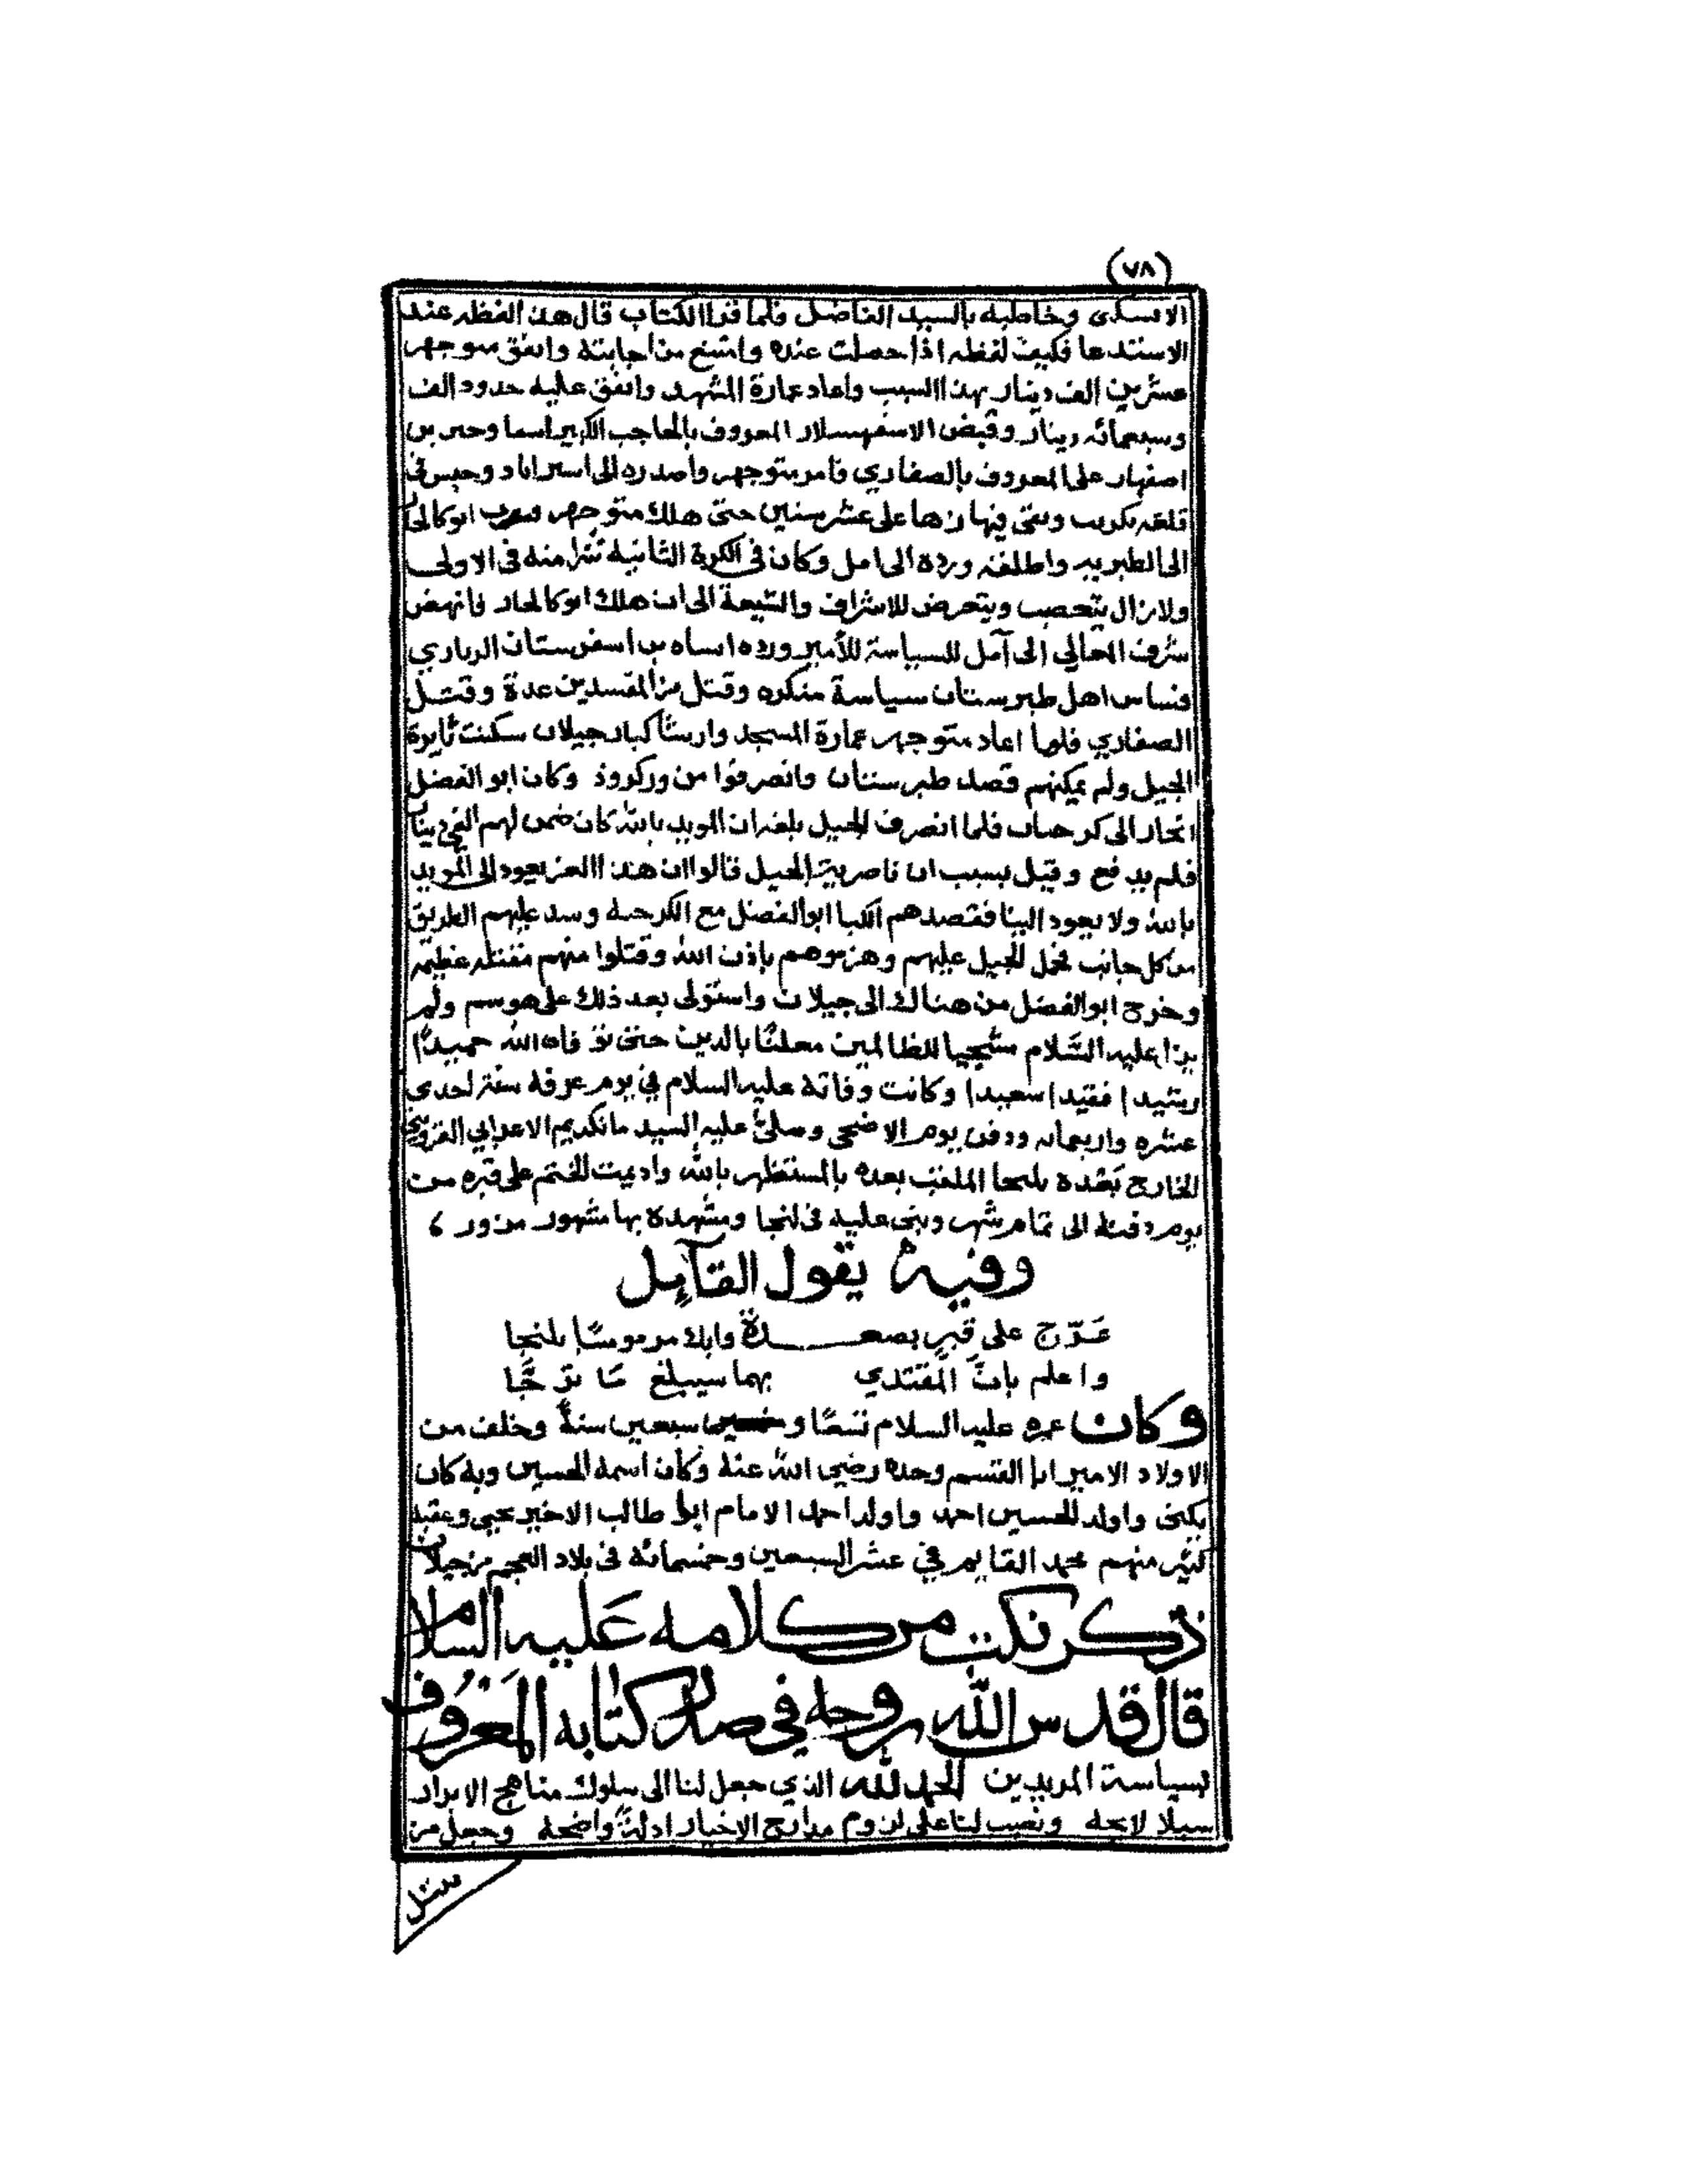 (٧٨)
الاسكى وخاطبه بالسيد الفاضل فلما قرا الكتاب قال هذه الفظه عند
الاستدعا فكيف لفظه اذا حصلت عنده وامتنع من اجابته وانفق منوجهر
عشرين الف دينار بهذا السبب واعاد عمارة المشهد وانفق عليه حدود الف
وسبعمائه دينار وقبض الاسفهسلار المعروف بالحاجب الكبير
اصفهار على المعروف بالصفاري فامر متوجهر واصدره الى استراباد وحبس في
قلعه وبقي فيها زها على عشر سنين حتى هلك متوجهر ابوكاليجار
الى الطبريه واطلقه ورده الى امل وكان في الكرة الثانية شرا منه في الاولى
ولا زال يتعصب ويتعرض للاشراف والشيعة الى ان هلك ابوكاليجار فانهض
شرف المعالي الى آمل للسياسة للأمير ورده اساه بن اسفرستان الرباري
فساس اهل طبرستان سياسة منكره وقتل من المفسدين عدة وقتل
الصفاري فلما اعاد متوجهر عمارة المسجد وارشا كبار جيلان سكنت ثايرة
الجيل ولم يمكنهم قصد طبرستان وانصرفوا من وركروذ وكان ابو الفضل
انحاز الى فلما انصرف الجيل بلغه ان المويد بالله كان ضمن لهم الفي دينار
فلم يدفع وقيل بسبب ان ناصرية الجيل قالوا ان هذا العز يعود الى المويد
بالله ولا يعود الينا فقصدهم الكيا ابو الفضل مع الكرحيه وسد عليهم الطريق
من كل جانب فحمل الجيل عليهم وهزموهم باذن الله وقتلوا منهم مقتله عظيمه
وخرج ابو الفضل من هناك الى جيلان واستولى بعد ذلك على هوسم ولم
يزل عليه السَّلام مشجيا للظالمين معلنًا بالدين حتى توفاه الله حميدًا
رشيدا فقيدا سعيدا وكانت وفاته عليه السلام في يوم عرفه سنة احدى
عشره واربعمائه ودفن يوم الاضحى وصلى عليه السيد مانكديم الاعرابي القزويني
الخارج بَعْده بلنجا الملقب بعده بالمستظهر بالله واديمت الختم على قبره من
يوم دفنه الى تمام شهر وبنى عليه في لنجا ومشهده بها مشهور مزور ٬
وفيه يقول القآئل
عَرّج على قبرٍ بصعـــدة وابك مرموسًا بلنجا
واعلم بانَّ المقتدي بهما سيبلغ مَا ترجَّا
وكان عمره عليه السلام تسعًا و سبعين سنةً وخلف من
الاولاد الامير ابا القسم وحده رضي الله عنه وكان اسمه الحسين وبه كان
يكنى واولد للحسين احمد واولد احمد الامام ابا طالب الاخير يحيى وعقبه
كثير منهم محمد القايم في عشر السبعين وخمسمائه في بلاد العجم من جيلان
ذكر نكت من كلامه عَليه السلام
قال قدس الله روحه في صدر كتابه المَعْرُوف
بسياسة المريدين الحمد لله الذي جعل لنا الى سلوك مناهج الابرار
سبلا لايحه ونصب لنا على لزوم مدارج الاخيار ادلةً واضحه وجعل من